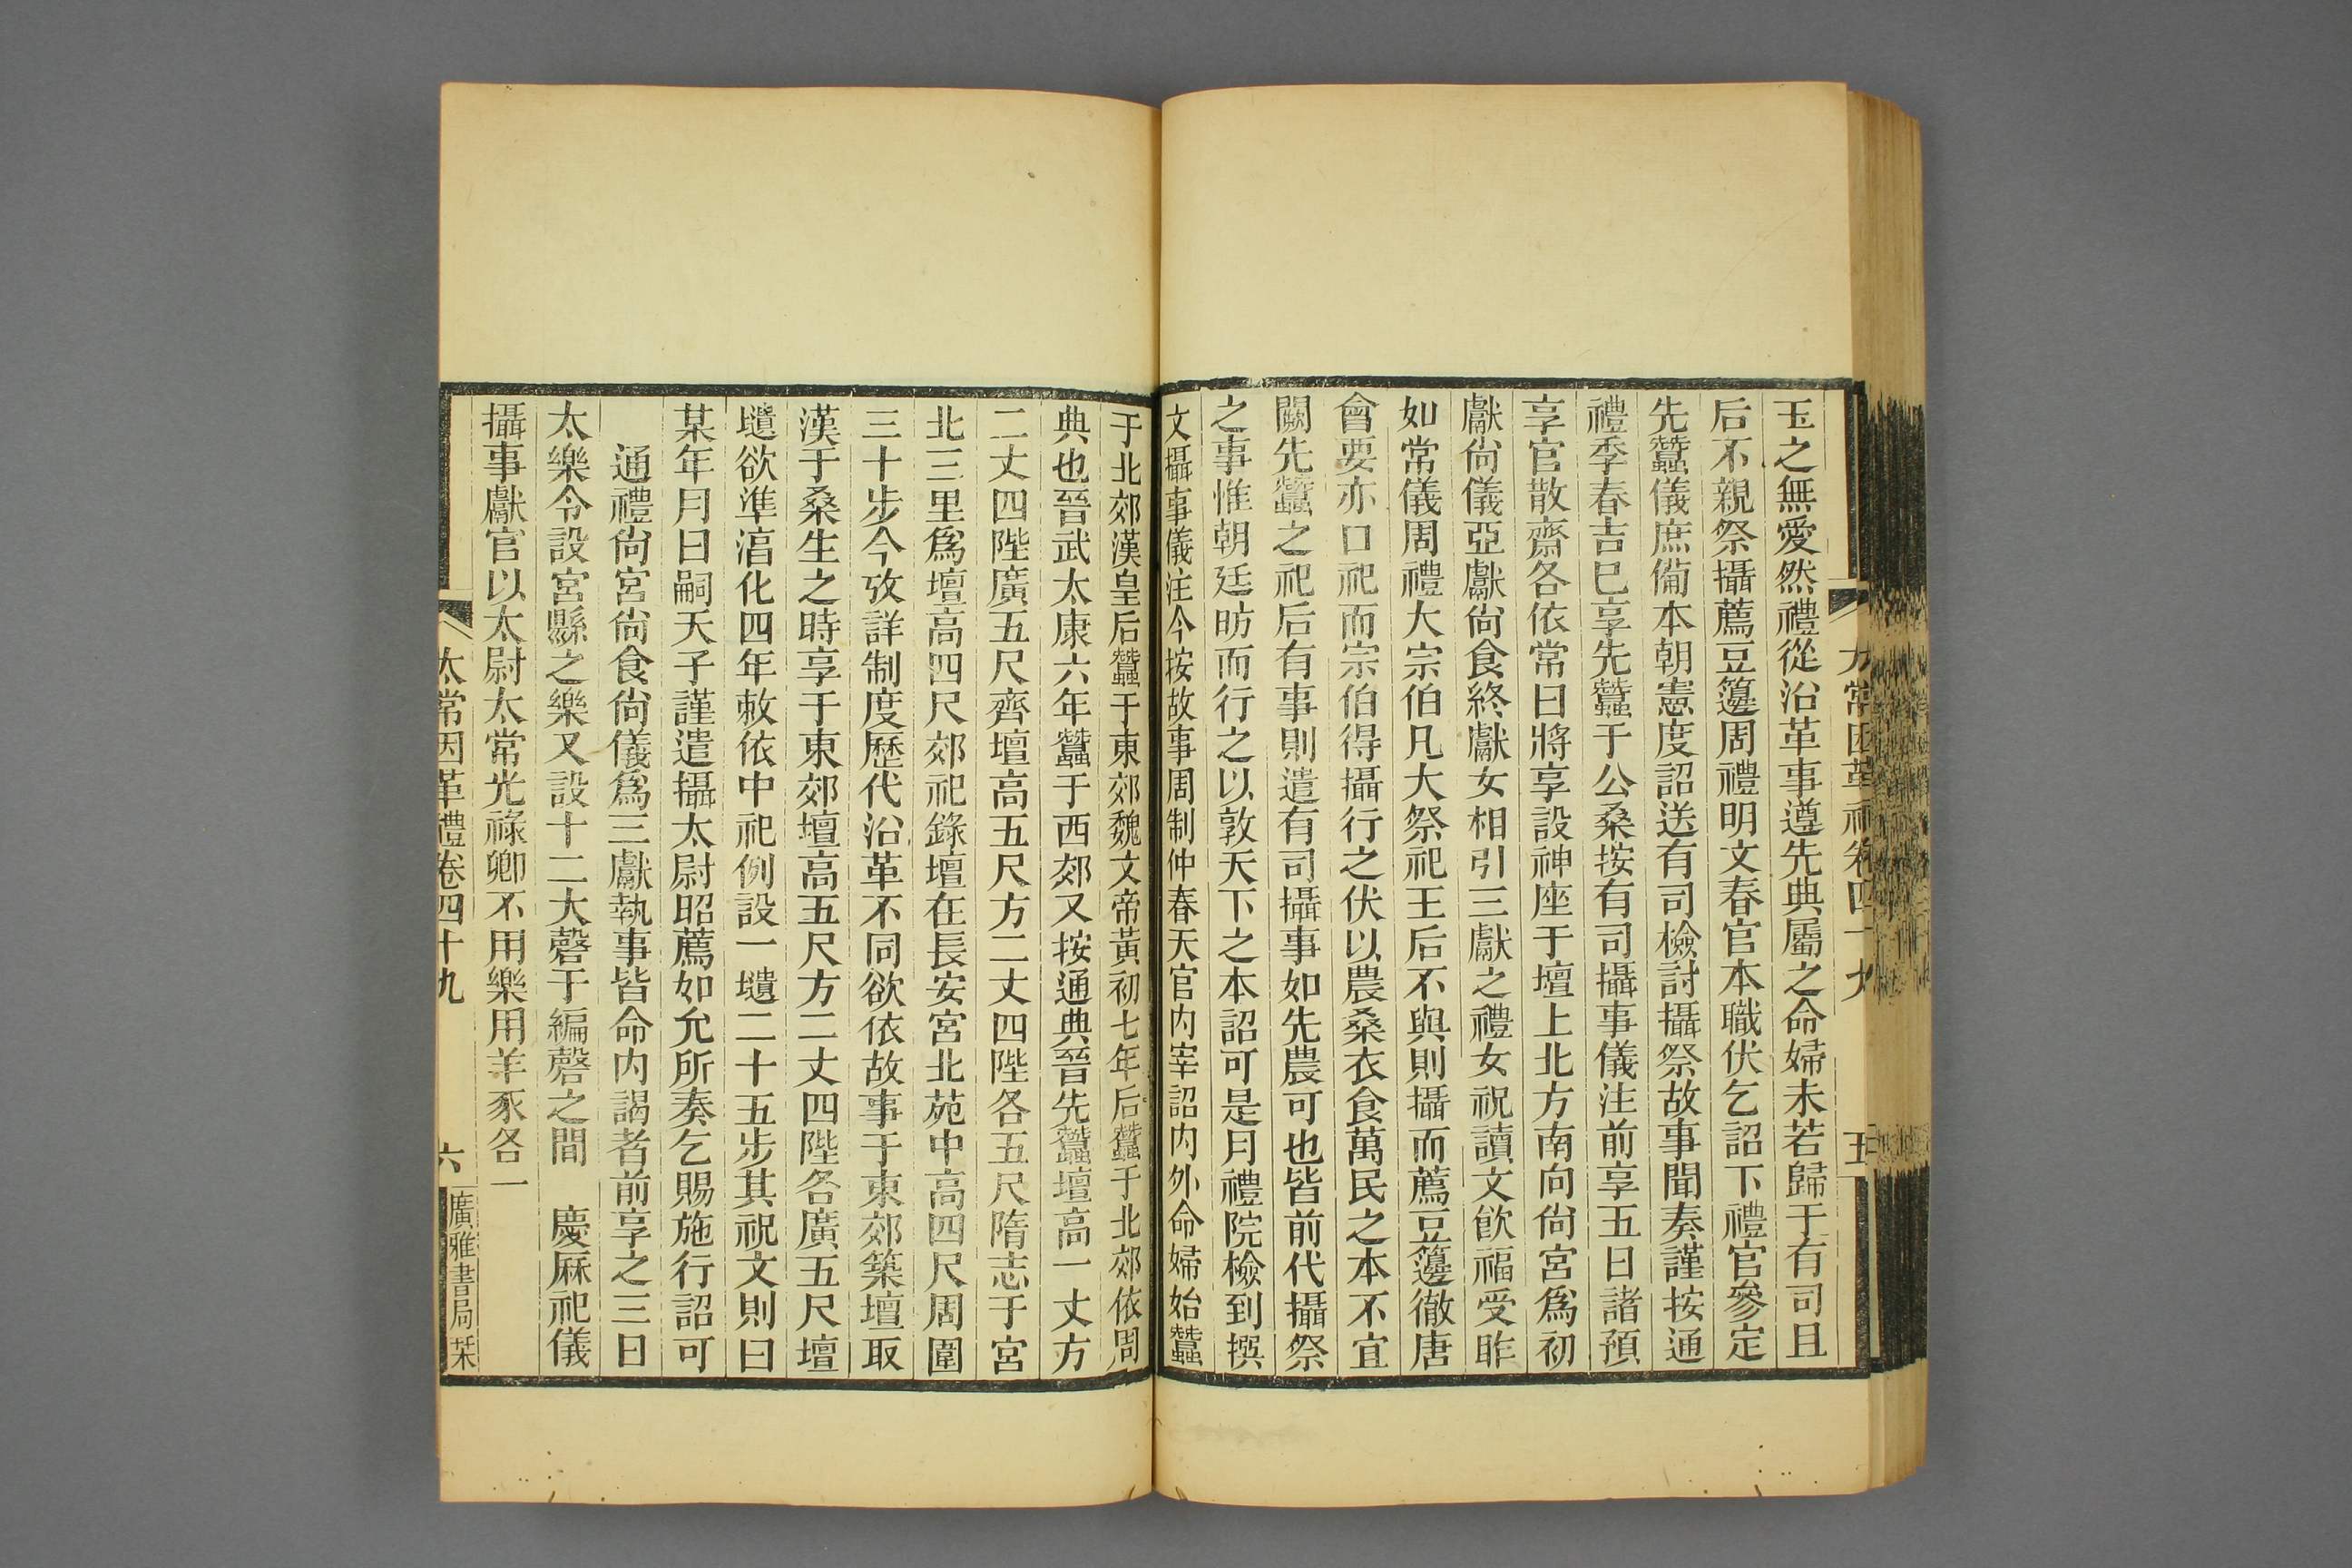 玉之無愛然禮從沿革事遵先典屬之命婦未若歸于有司且
后不親祭攝薦豆籩周禮明文春官本職伏乞詔下禮官參定
先蠶儀庶僃本朝憲度詔送有司檢討攝祭故事聞奏謹按通
禮季春吉巳享先蠶于公桑按有司攝事儀注前享五日諸預
享官散齋各依常日將享設神座于壇上北方南向尙宮爲初
獻尙儀亞獻尙食終獻女相引三獻之禮女祝讀文飮福受胙
如常儀周禮大宗伯凡大祭祀王后不與則攝而薦豆籩徹唐
會要亦口祀而宗伯得攝行之伏以農桑衣食萬民之本不宜
闕先蠶之祀后有事則遣有司攝事如先農可也皆前代攝祭
之事惟朝廷昉而行之以敦天下之本詔可是月禮院檢到撰
文攝事儀注今按故事周制仲春天官内宰詔内外命婦始蠶
于北郊漢皇后蠶于東郊魏文帝黃初七年后蠶于北郊依周
典也晉武太康六年蠶于西郊又按通典晉先蠶壇高一丈方
二丈四陛廣五尺齊壇高五尺方二丈四陛各五尺隋志于宮
北三里爲壇高四尺郊祀錄壇在長安宮北苑中高四尺周圍
三十步今攷詳制度歷代沿革不同欲依故事于東郊築壇取
漢于桑生之時享于東郊壇高五尺方二丈四陛各廣五尺壇
壝欲準湻化四年敕依中祀例設一壝二十五步其祝文則曰
某年月日嗣天子謹遣攝太尉昭薦如允所奏乞賜施行詔可
通禮尙宮尙食尙儀爲三獻執事皆命内謁者前享之三日
太樂令設宮縣之樂又設十二大磬于編磬之間　慶厤祀儀
攝事獻官以太尉太常光祿卿不用樂用羊豕各一
太常因革禮卷四十九
六
廣雅書局栞